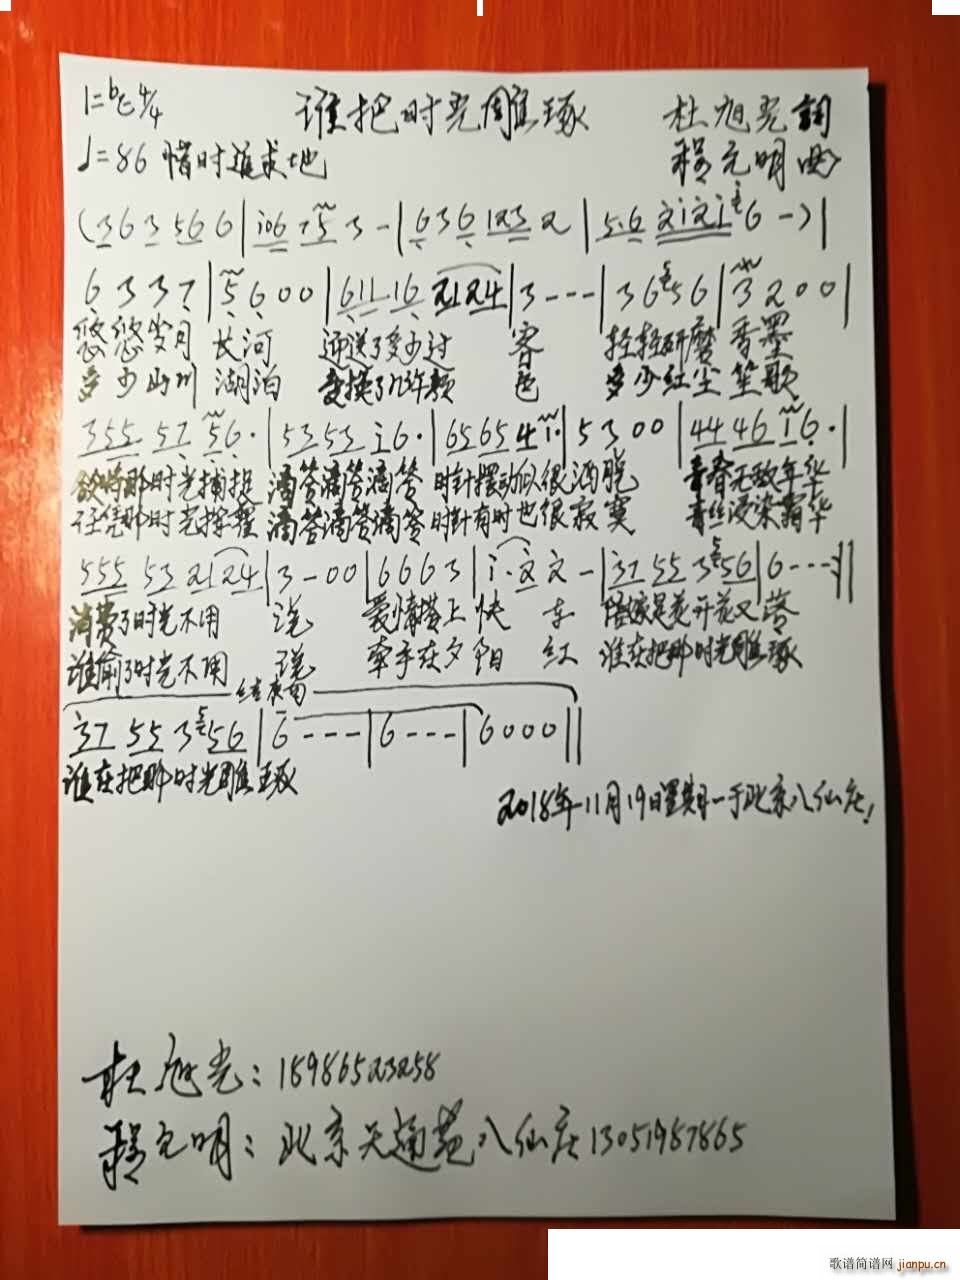 1=bE 4/4 谁把时光雕琢 杜旭光 詞
♩=86 惜时追求地 程元明 曲
(3 6 3 5 6 6 | i 0 6 7 5 3 - | 6 3 6 1 2 3 2 | 5. 6 2 i 2 i 6 -) |
6 3 3 7 | 5 6 0 0 | 6 1 1 1 6 2 1 2 4 | 3 - - - | 3 6 5 6 | 3 2 0 0 |
悠悠岁月 长河 迎送了多少过 客 轻轻研磨 香墨
多少山川 湖泊 变换了几许颜 色 多少红尘 笙歌
3 5 5 5 7 5 6. | 5 3 5 3 i 6. | 6 5 6 5 4 i. | 5 3 0 0 | 4 4 4 6 i 6. |
欲将那时光捕捉 滴答滴答滴答 时针摆动似很洒脱 青春无敌年华
任凭那时光挥霍 滴答滴答滴答 时针有时也很寂寞 青丝浸染霜华
5 5 5 5 3 2 1 2 4 | 3 - 0 0 | 6 6 6 3 | i. 2 2 - | 3 7 5 5 3 5 6 | 6 - - - :||
消费了时光不用 说 爱情搭上快 车 陪嫁是花开花又落
谁偷了时光不用 说 牵手在夕阳 红 谁在把那时光雕琢
结束句
3 7 5 5 3 5 6 | 6 - - - | 6 - - - | 6 0 0 0 ||
谁在把那时光雕琢
2018年11月19日星期一于北京八仙庄!
杜旭光：15986523258
程元明：北京天通苑八仙庄13051987865
歌谱简谱网 jianpu.cn